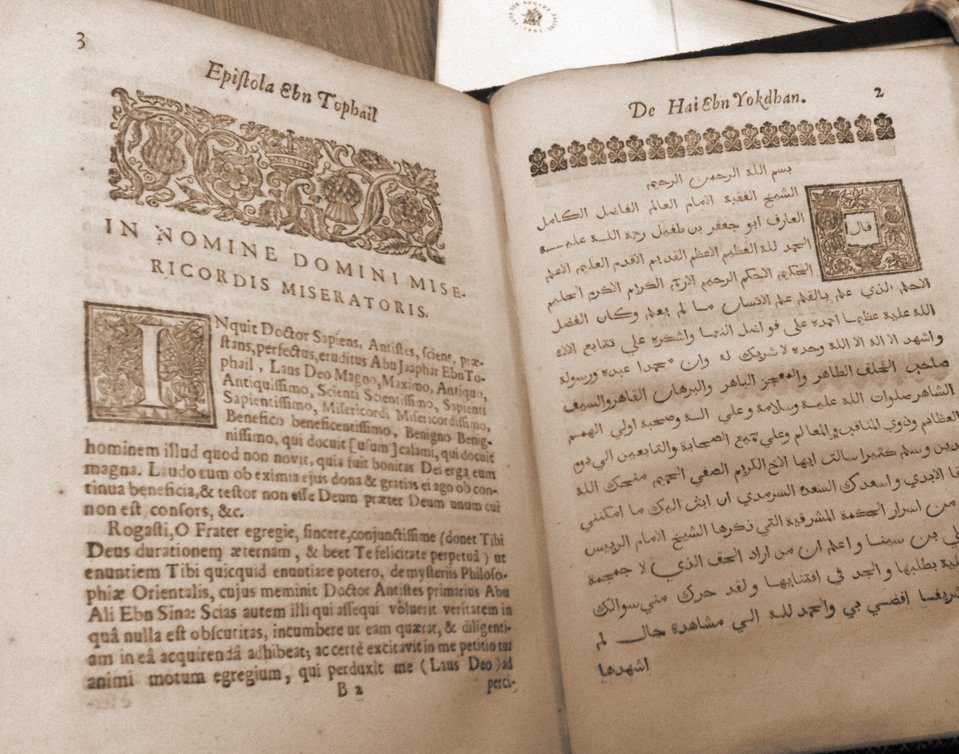 3
Epistola Ebn Tophail
IN NOMINE DOMINI MISE-
RICORDIS MISERATORIS.
INquit Doctor Sapiens, Antistes, sciens, præ-
stans, perfectus, eruditus Abu Jaaphar Ebn To-
phail, Laus Deo Magno, Maximo, Antiquo,
Antiquissimo, Scienti Scientissimo, Sapienti
Sapientissimo, Misericordi Misericordissimo,
Benefico beneficentissimo, Benigno Benig-
nissimo, qui docuit [usum] calami, qui docuit
hominem illud quod non novit, quia fuit bonitas Dei erga eum
magna. Laudo eum ob eximia ejus dona & gratias ei ago ob con-
tinua beneficia, & testor non esse Deum præter Deum unum cui
non est consors, &c.
Rogasti, O Frater egregie, sincere, conjunctissime (donet Tibi
Deus durationem æternam, & beet Te felicitate perpetuâ) ut
enuntiem Tibi quicquid enuntiare potero, de mysteriis Philoso-
phiæ Orientalis, cujus meminit Doctor Antistes primarius Abu
Ali Ebn Sina: Scias autem illi qui assequi voluerit veritatem in
quâ nulla est obscuritas, incumbere ut eam quærat, & diligenti-
am in eâ acquirendâ adhibeat; ac certè excitavit in me petitio tua
animi motum egregium, qui perduxit me (Laus Deo) ad
B 2 perci-
De Hai Ebn Yokdhan. 2
بسم الله الرحمن الرحيم
قال الشيخ الفقيه الامام العالم الفاضل الكامل
العارف ابو جعفر بن طفيل رحمة الله عليه
الحمد لله العظيم الاعظم القديم الاقدم العليم الاعلم
الحكيم الاحكم الرحيم الارحم الكريم الاكرم الحليم
الاحلم الذي علم بالقلم علم الانسان ما لم يعلم وكان الفضل
الله عليه عظيما احمده علي فواضل النعما واشكره علي تتابع الالاء
واشهد الا اله الا الله وحده لا شريك له وان محمدا عبده ورسوله
صاحب الخلف الطاهر والمعجز الباهر والبرهان القاهر والسيف
الشاهر صلوات الله عليه وسلامه وعلي اله وصحبه اولي الهمم
العظائم وذوي المناقب والمعالم وعلي جميع الصحابة والتابعين الي يوم
الدين وسلم كثيرا سالت ايها الاخ الكريم الصفي الحميم منحك الله
الابدي واسعدك السعد السرمدي ان ابث اليك ما امكنني
من اسرار الحكمة المشرقية التي ذكرها الشيخ الامام الرييس
بن سينا واعلم ان من اراد الحق الذي لا جمجمة
بطلبها والجد في اقتنايها ولقد حرك مني سوالك
شريفا افضي بي والحمد لله الي مشاهدة حال لم
اشهدها